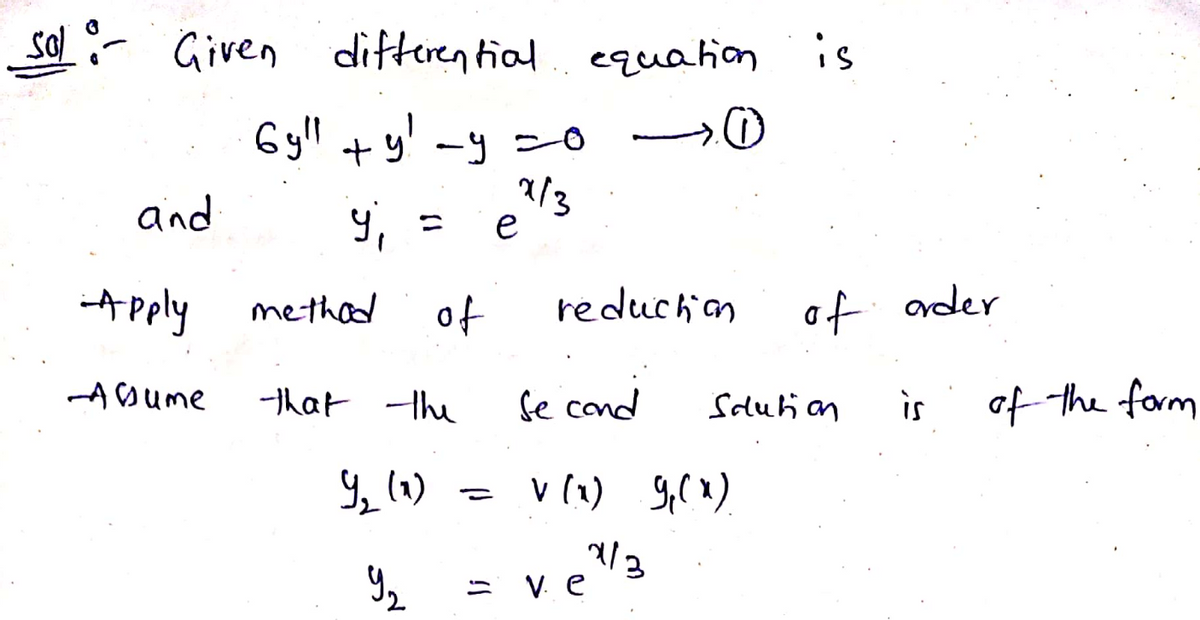 Sol :- Given differential equation is
6y'' + y' - y = 0 → ①
and y₁ = e^{x/3}
Apply method of reduction of order
Assume that the second solution is of the form
y₂(x) = v(x) y₁(x)
y₂ = v. e^{x/3}